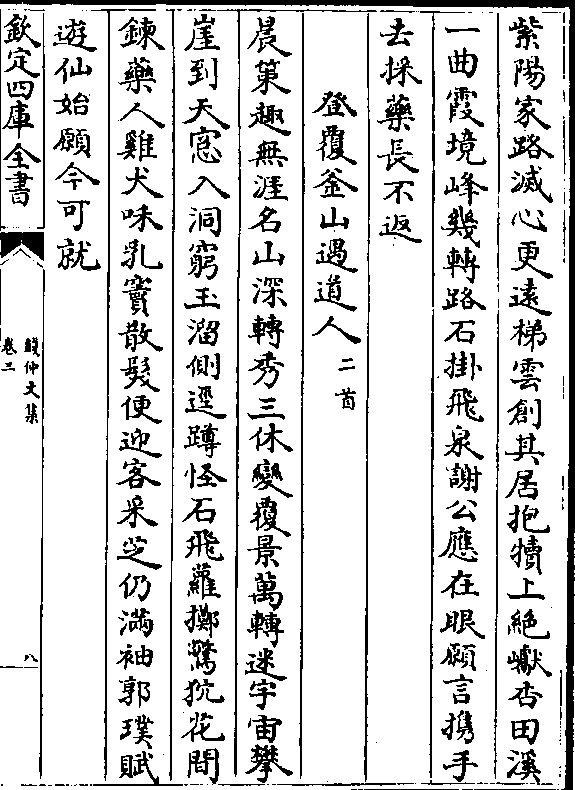 紫陽家路滅心更遠梯雲創其居抱犢上絶巘杏田溪
一曲霞境峰幾轉路石掛飛泉謝公應在眼願言擕手
去採藥長不返
登覆釜山遇道人二首
晨策趣無涯名山深轉秀三休變覆景萬轉迷宇宙攀
崖到天窓入洞窮玉溜側逕蹲怪石飛蘿擲驚狖花間
鍊藥人雞犬味乳竇散髮便迎客采芝仍滿袖郭璞賦
遊仙始願今可就
欽定四庫全書
錢仲文集
卷三
八